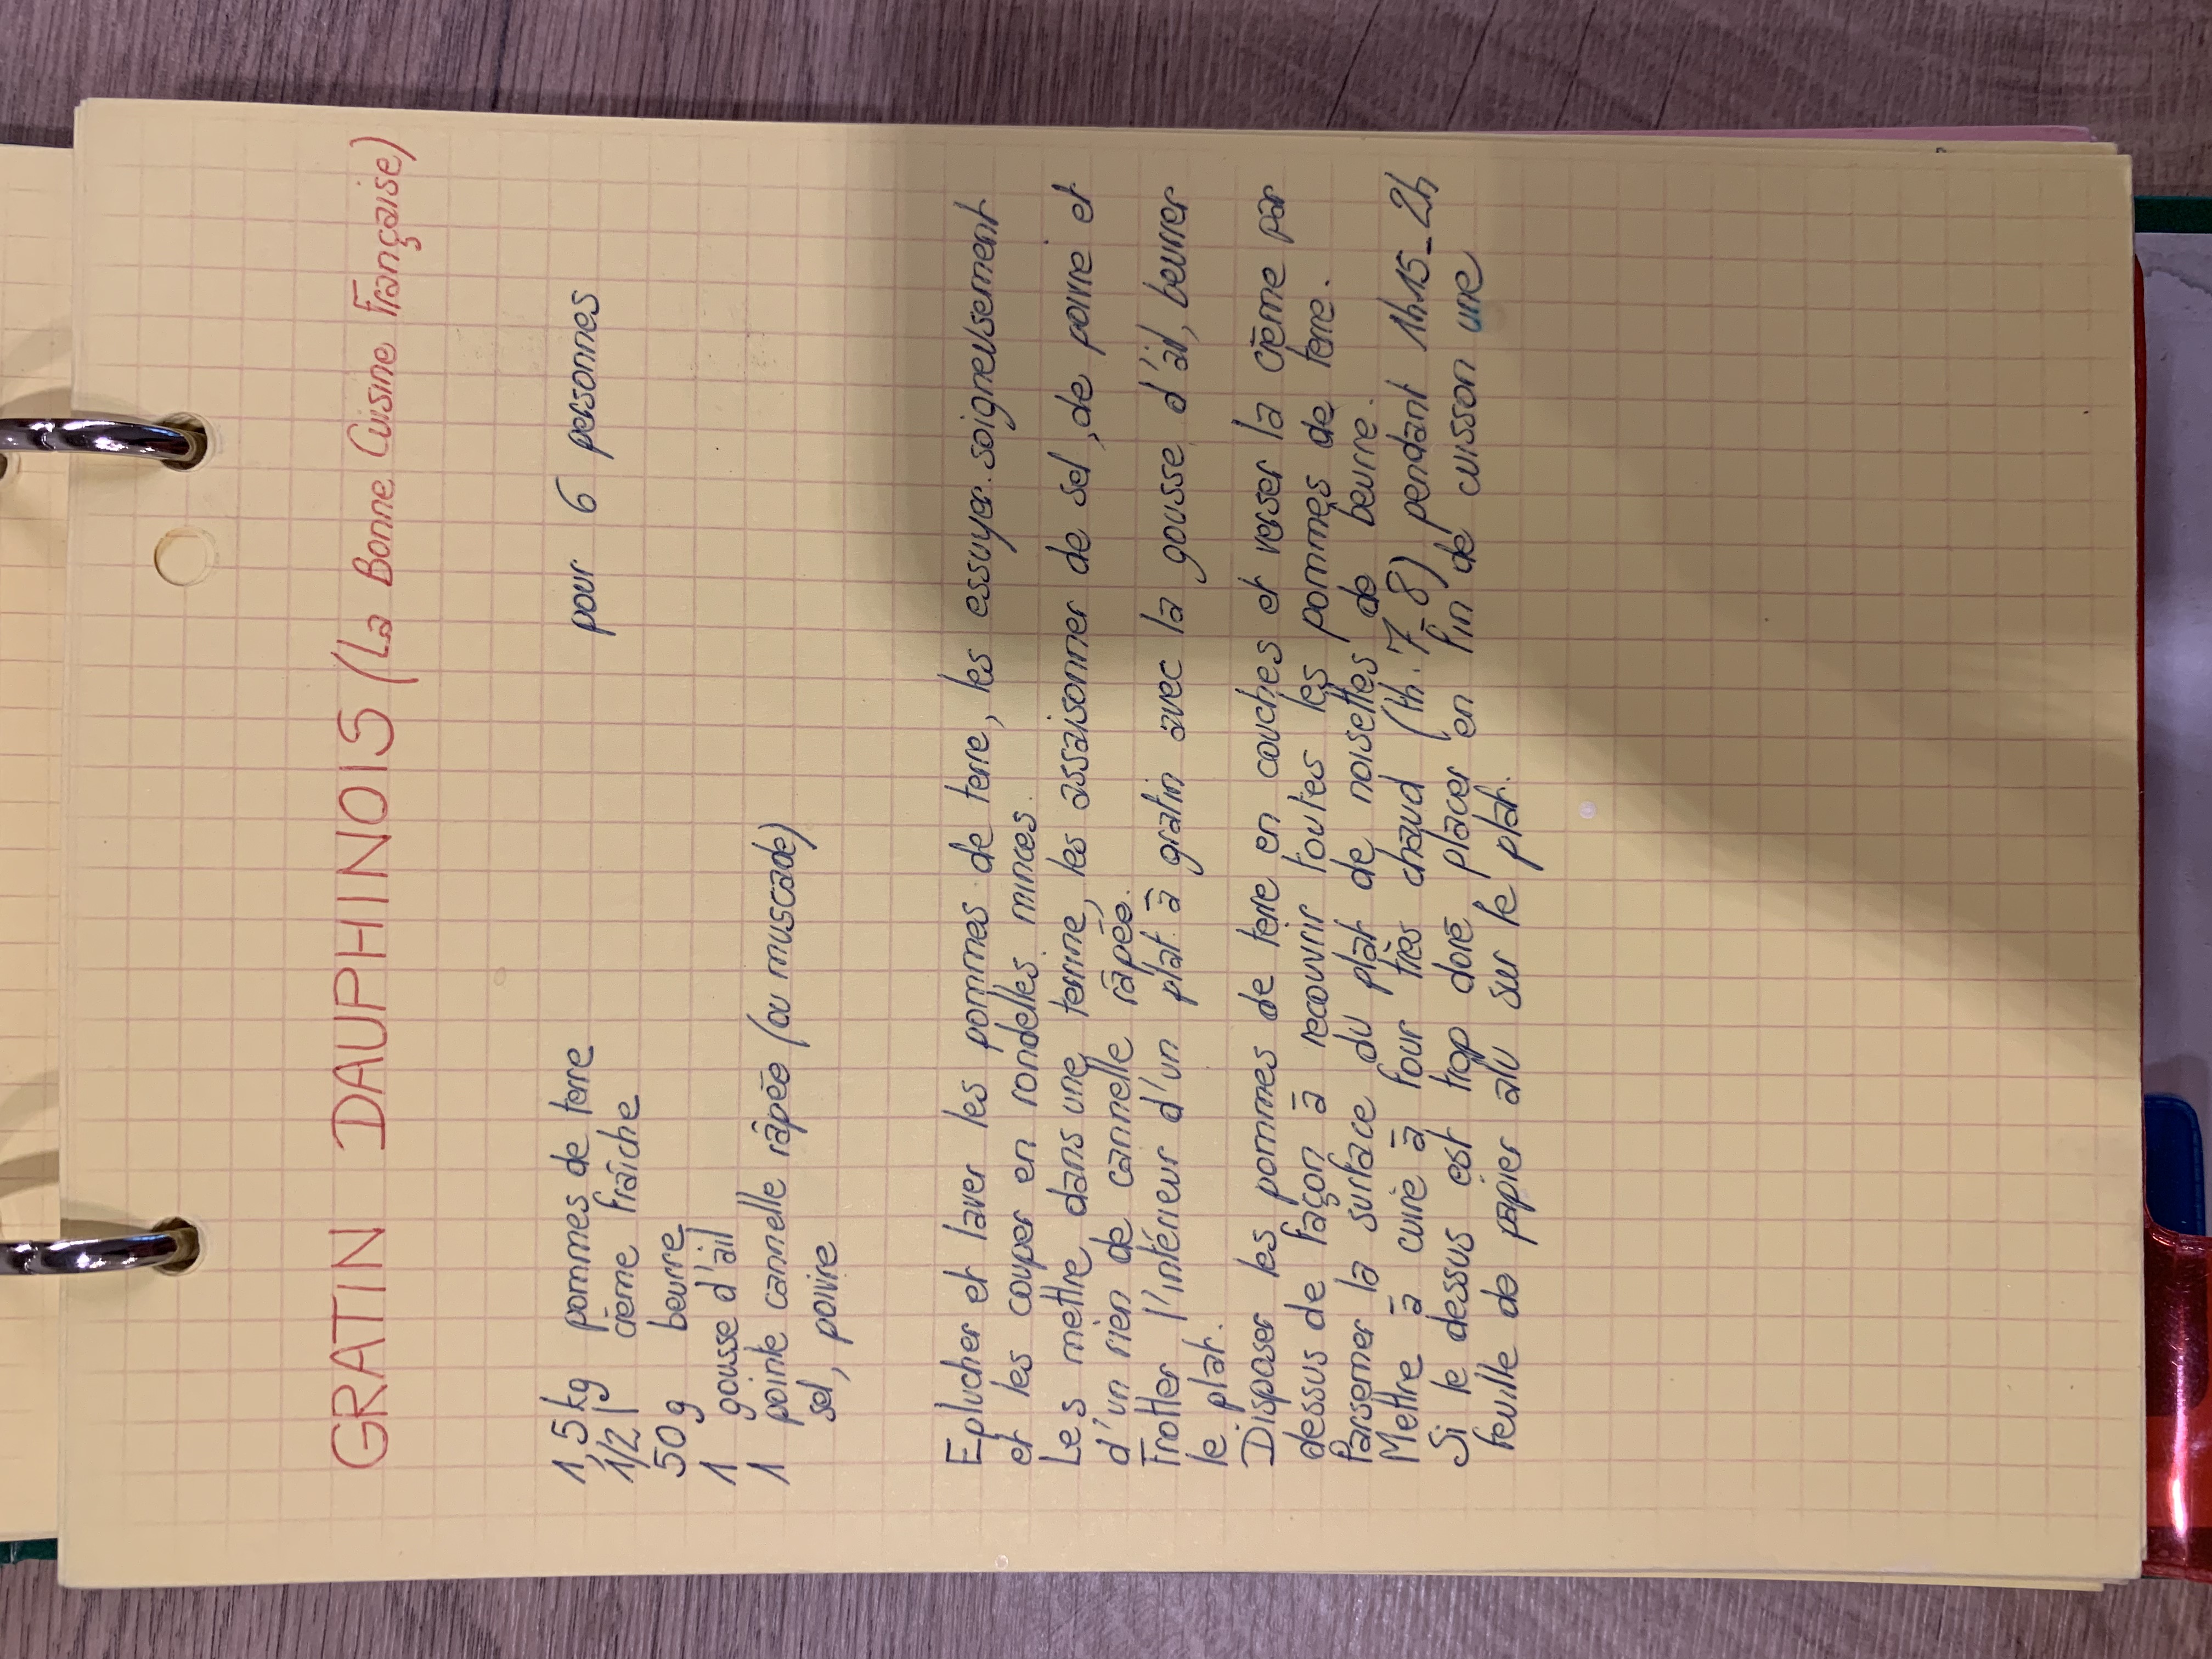 GRATIN DAUPHINOIS (La Bonne Cuisine Française)
pour 6 personnes
1,5 kg pommes de terre
1/2 l crème fraîche
50 g beurre
1 gousse d'ail
1 pointe cannelle râpée (ou muscade)
sel, poivre
Eplucher et laver les pommes de terre, les essuyer soigneusement
et les couper en rondelles minces.
Les mettre dans une terrine, les assaisonner de sel, de poivre et
d'un rien de cannelle râpée.
Frotter l'intérieur d'un plat à gratin avec la gousse d'ail, beurrer
le plat.
Disposer les pommes de terre en couches et verser la crème par
dessus de façon à recouvrir toutes les pommes de terre.
Parsemer la surface du plat de noisettes de beurre.
Mettre à cuire à four très chaud (th. 7-8) pendant 1h15-2h
Si le dessus est trop doré placer en fin de cuisson une
feuille de papier alu sur le plat.